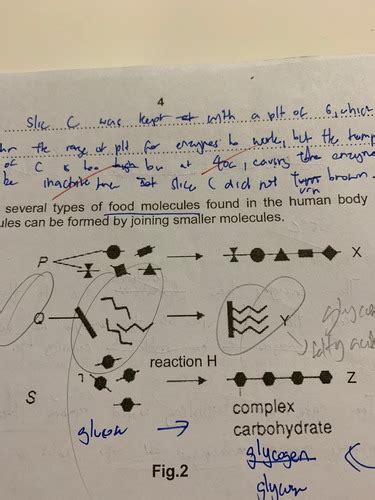 4
Slice C was kept at with a pH of 6, which
the range of pH for enzymes to work, but the temp
of C is too low at 4oC, causing the enzyme
be inactive the slice C did not turn brown.
several types of food molecules found in the human body
ules can be formed by joining smaller molecules.
P X
Q Y
fatty acid
reaction H
S Z
glucose →
complex
carbohydrate
glycogen
Fig.2